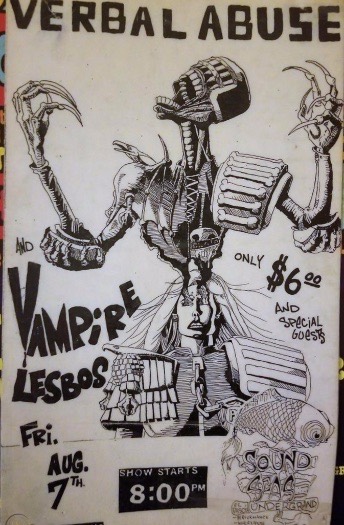 VERBAL ABUSE
AND
VAMPIRE
LESBOS
ONLY
$6.00
AND
SPECIAL
GUESTS
FRI.
AUG.
7TH.
SHOW STARTS
8:00PM
SOUND
UNDERGROUND